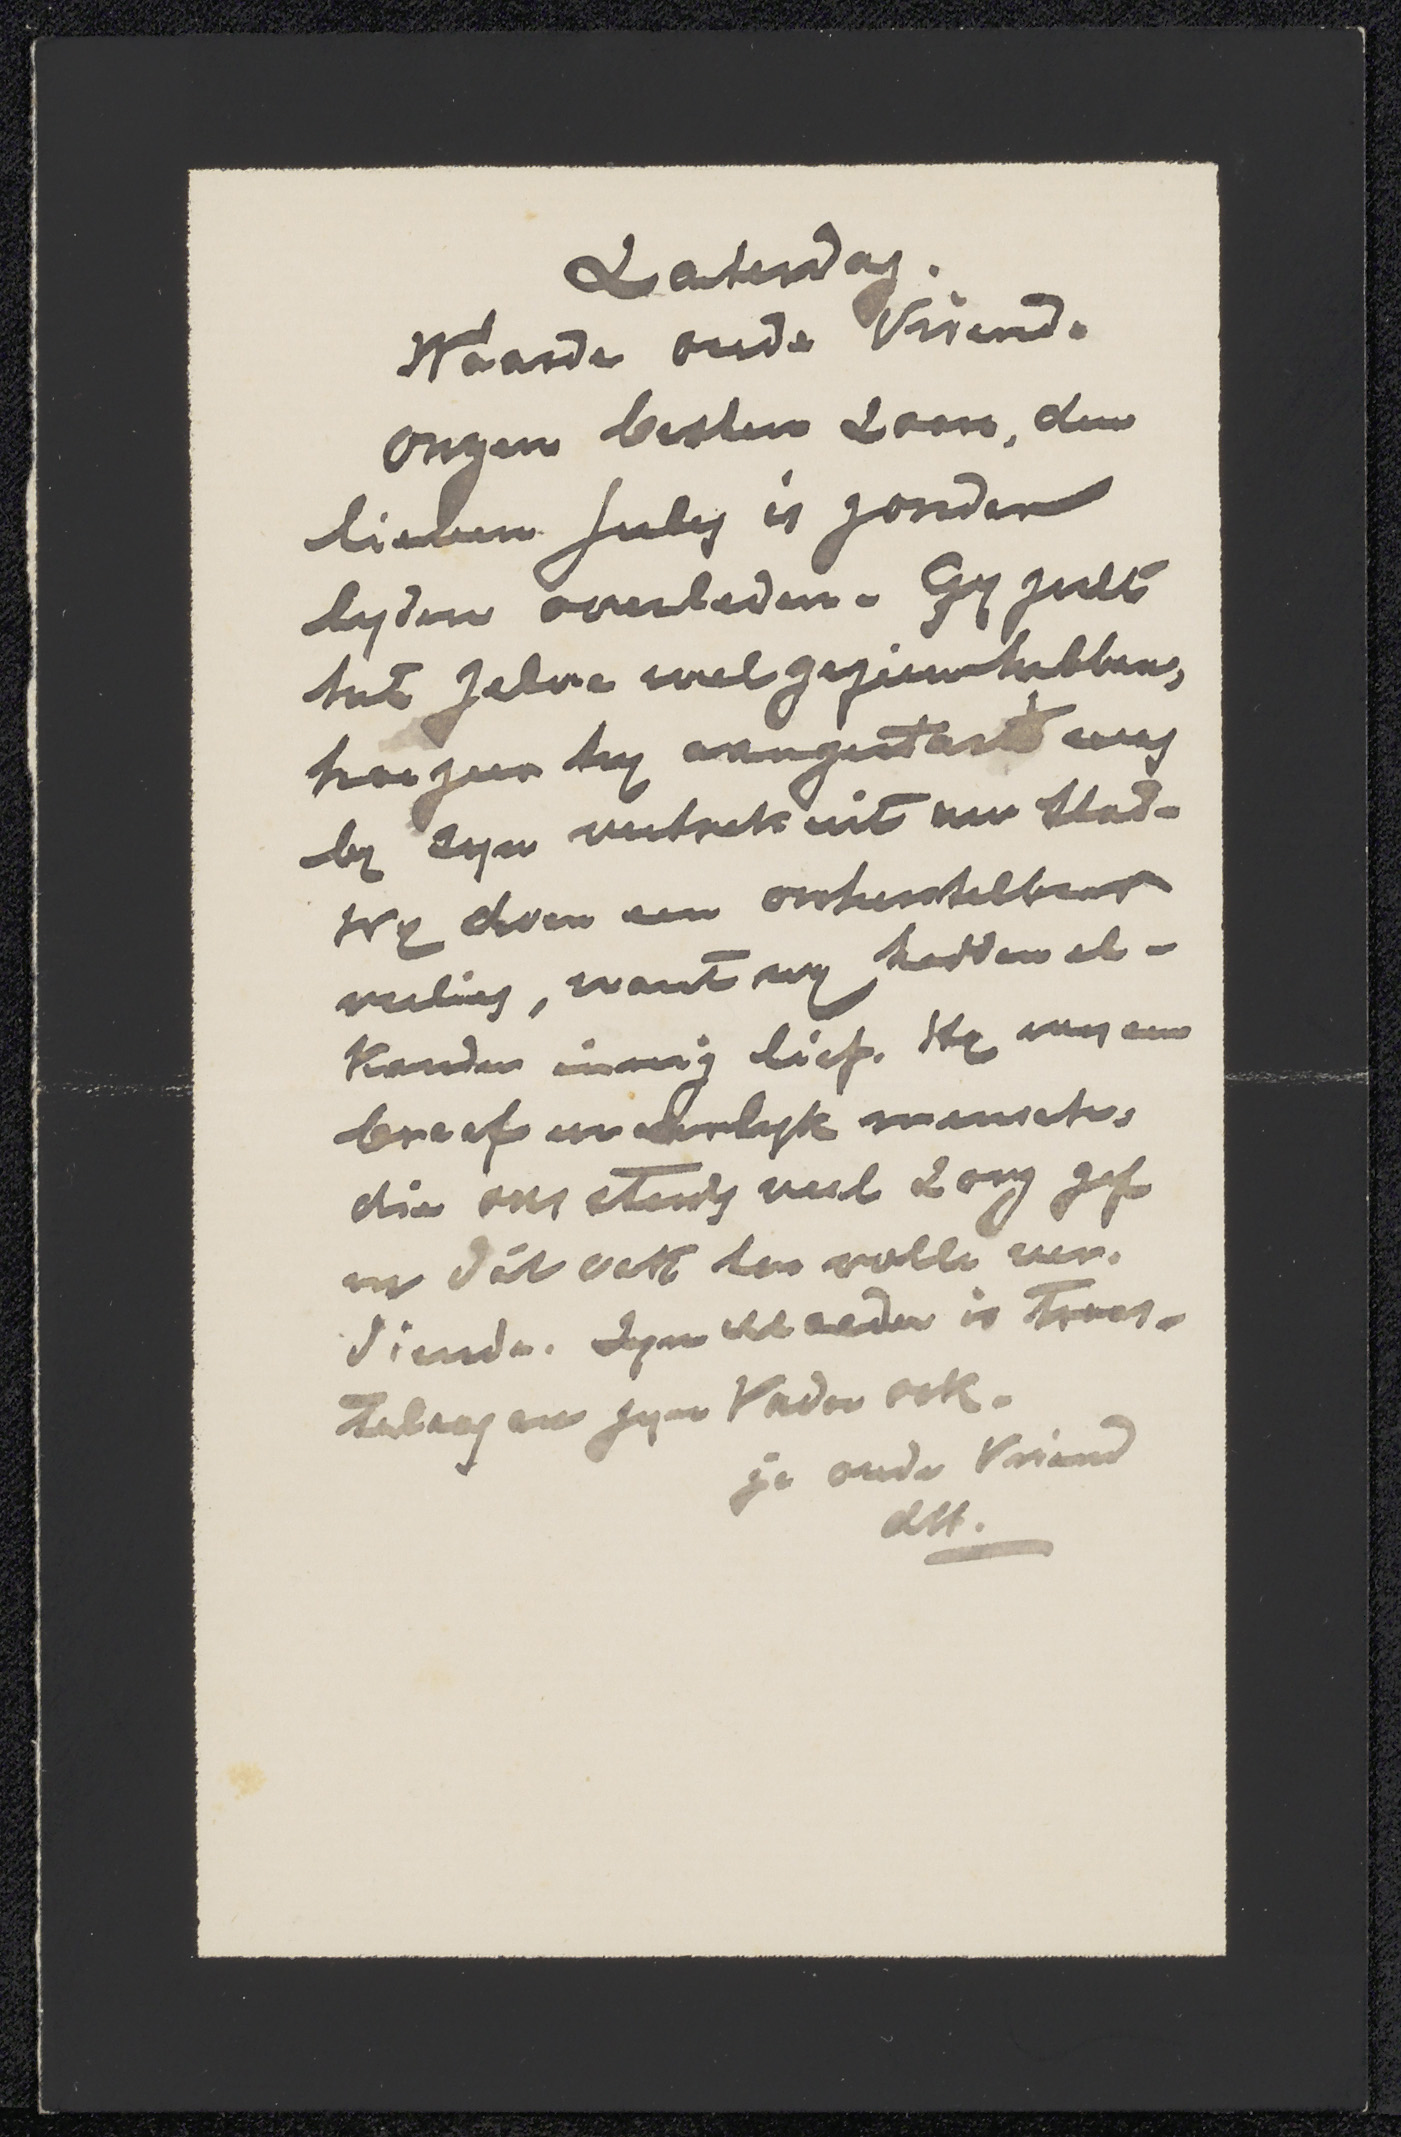 Zaterdag.
Waarde oude Vriend.
Onzen besten Zoon, den
lieven Jules is zonder
lyden overleden. Gy zult
het zelve wel gezien hebben,
hoezeer hy aangetast was
by zyn vertrek uit uw stad.
Wy doen een onherstelbaar
verlies, want wy hadden el-
kander innig lief. Hy was een
braaf en eerlyk mensch,
die ons steeds veel zorg gaf
en dát ook ten volle ver-
diende. Zyn Moeder is troos-
teloos en zyn Vader ook.
je oude Vriend